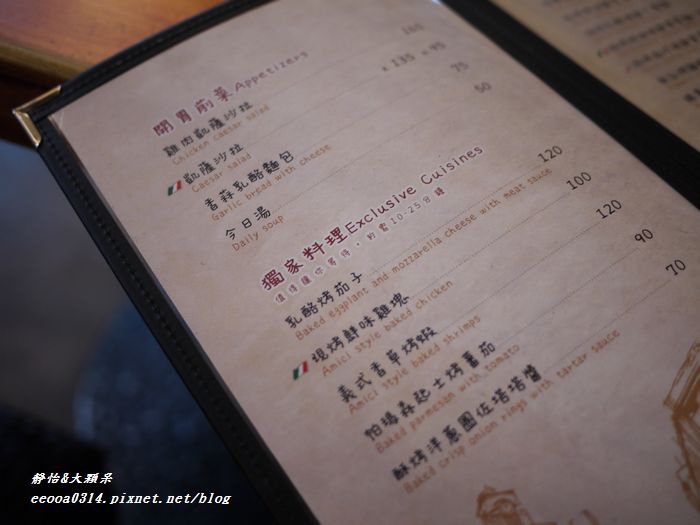 開胃前菜Appetizers
雞肉凱薩沙拉 160
Chicken caesar salad
凱薩沙拉 x 135 = 95
Caesar salad
香蒜乳酪麵包 75
Garlic bread with cheese
今日湯 50
Daily soup
獨家料理Exclusive Cuisines
值得讓你等待，約需10-25分鐘
乳酪烤茄子 120
Baked eggplant and mozzarella cheese with meat sauce
現烤鮮味雞塊 100
Amici style baked chicken
義式香草烤蝦 120
Amici style baked shrimps
帕瑪森起士烤蕃茄 90
Baked parmesan with tomato
酥烤洋蔥圈佐塔塔醬 70
Baked crisp onion rings with tartar sauce
靜怡&大顆呆
eeooa0314.pixnet.net/blog